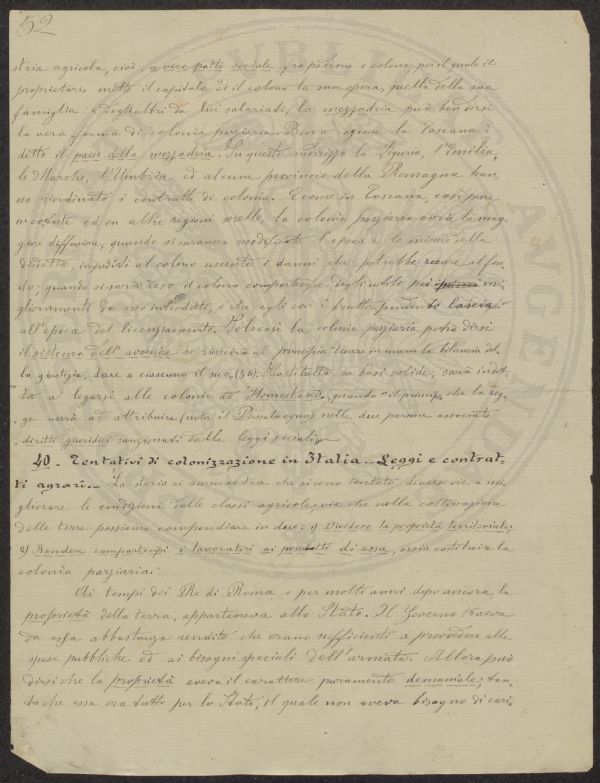 52
stria agricola, cioè, a vero patto sociale fra padrone e colono, per il quale il
proprietario mette il capitale ed il colono la sua opera, quella della sua
famiglia e degli altri da lui salariati, la mezzadria può ben dirsi
la vera forma di colonia parziaria. A buona ragione la Toscana è
detta il paese della mezzadria. Su questo indirizzo la Liguria, l'Emilia,
le Marche, l'Umbria ed alcune provincie della Romagna han-
no riordinato i contratti di colonia. E come in Toscana, così pure
in codeste ed in altre regioni sorelle, la colonia parziaria avrà la mag-
giore diffusione, quando si saranno modificate l'epoca e le misure della
disdetta, impediti al colono uscente i danni che potrebbe recare al fon-
do; quando si sarà reso il colono compartecipe degli utili pei mi-
glioramenti da esso introdotti, e che egli con i frutti pendenti lascia
all'epoca del licenziamento. Solo così la colonia parziaria potrà dirsi
il sistema dell'avvenire se riuscirà al principio: tenere in mano la bilancia del-
la giustizia, dare a ciascuno il suo. (36). Costituita su basi solide, sarà invita-
ta a legarsi alle colonie ad Homestead, quando il principio che la leg-
ge verrà ad attribuire (nota il Passalacqua) nelle due persone associate
diritti giuridici sanzionati dalle leggi sociali.
40. Tentativi di colonizzazione in Italia. Leggi e contrat-
ti agrari. La storia ci ammaestra che si sono tentate diverse vie a mi-
gliorare le condizioni delle classi agricole, vie che nella coltivazione
delle terre possiamo compendiare in due: 1) Dividere la proprietà territoriale;
2) Rendere compartecipi i lavoratori ai prodotti di essa, ossia costituire la
colonia parziaria.
Ai tempi dei Re di Roma e per molti anni dopo ancora, la
proprietà della terra, apparteneva allo Stato. Il Governo traeva
da essa abbastanza rendite che erano sufficienti a provvedere alle
spese pubbliche ed ai bisogni speciali dell'armata. Allora può
dirsi che la proprietà aveva il carattere puramente demaniale; tan-
to che essa era tutto per lo Stato, il quale non aveva bisogno di cari-